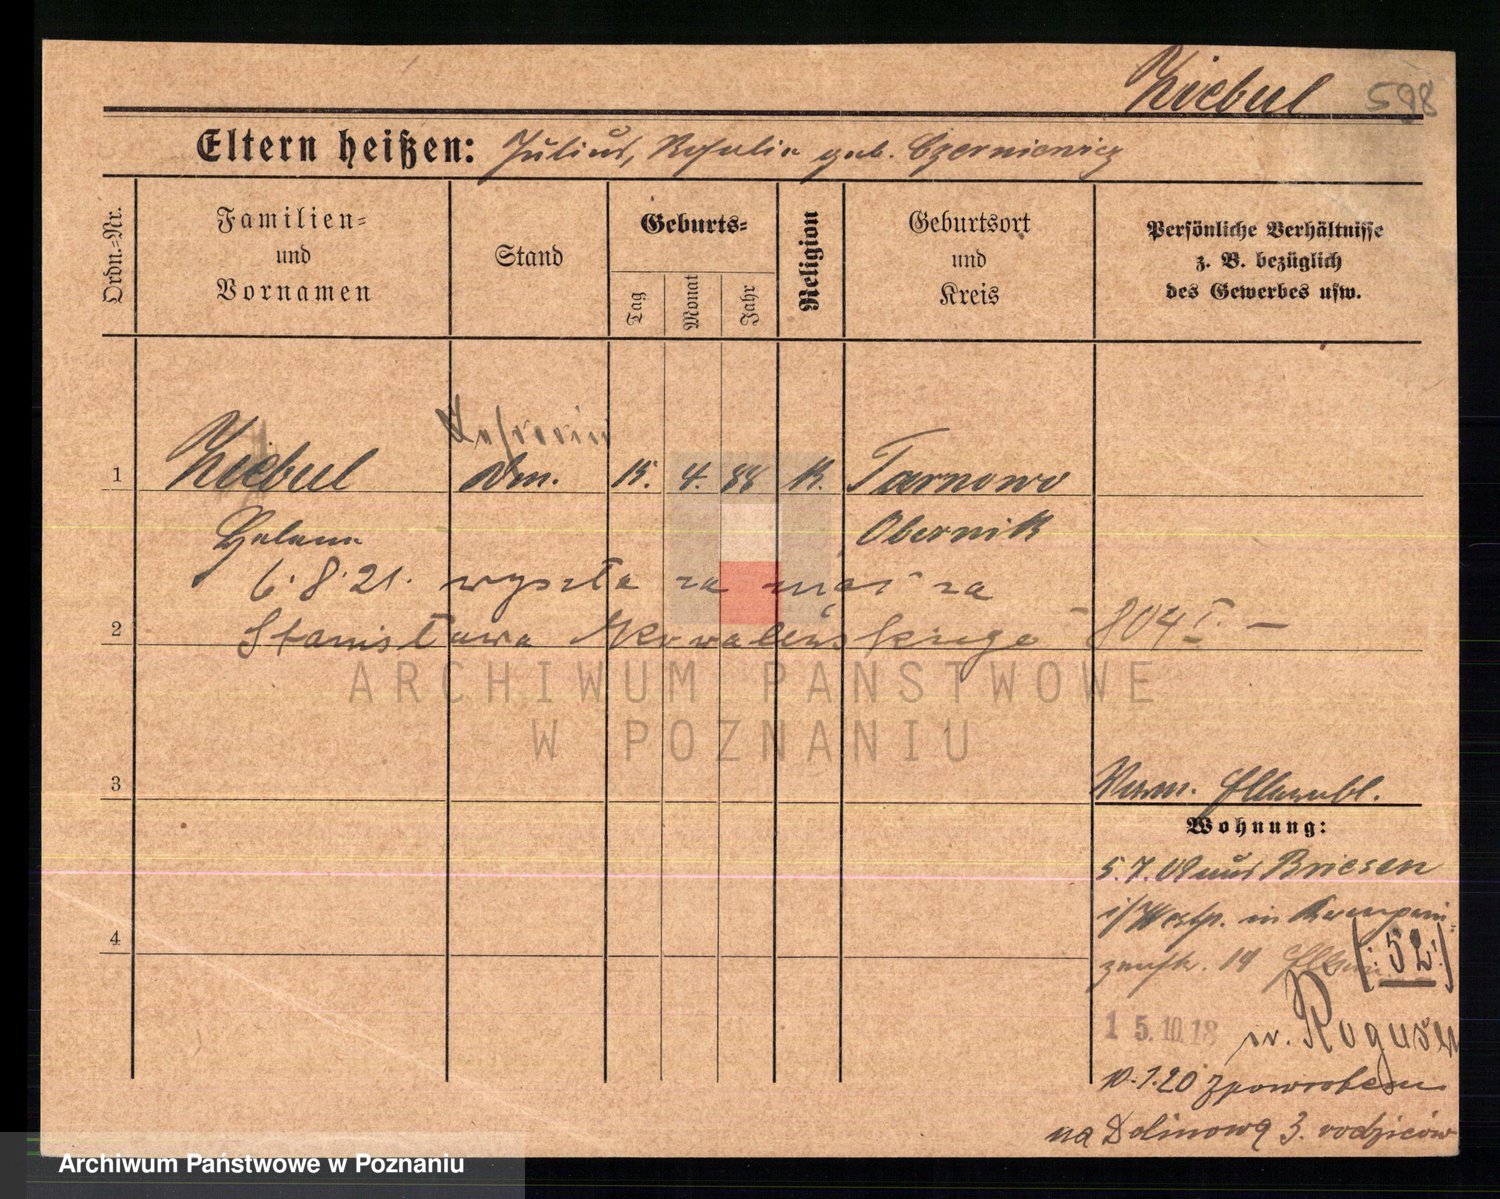 Kiebul 598
Eltern heißen: Julius, Rosalie geb. Czerniewicz
Ordn.=Nr.
Familien= und Vornamen
Stand
Geburts=
Tag
Monat
Jahr
Religion
Geburtsort und Kreis
Persönliche Verhältnisse z. B. bezüglich des Gewerbes usw.
1 Kiebul 15. 4. 88 K. Tarnowo
Helene Obernik
6.8.21. wyszła za mąż za
2 Stanisława 804 I. —
ARCHIWUM PAŃSTWOWE
W POZNANIU
3
Wohnung:
5.7.09 aus Briesen
i/Westp. in
4
14 (:52:)
15.10.18 n.
10.1.20 z powrotem
na Dolinową 3. rodziców
Archiwum Państwowe w Poznaniu